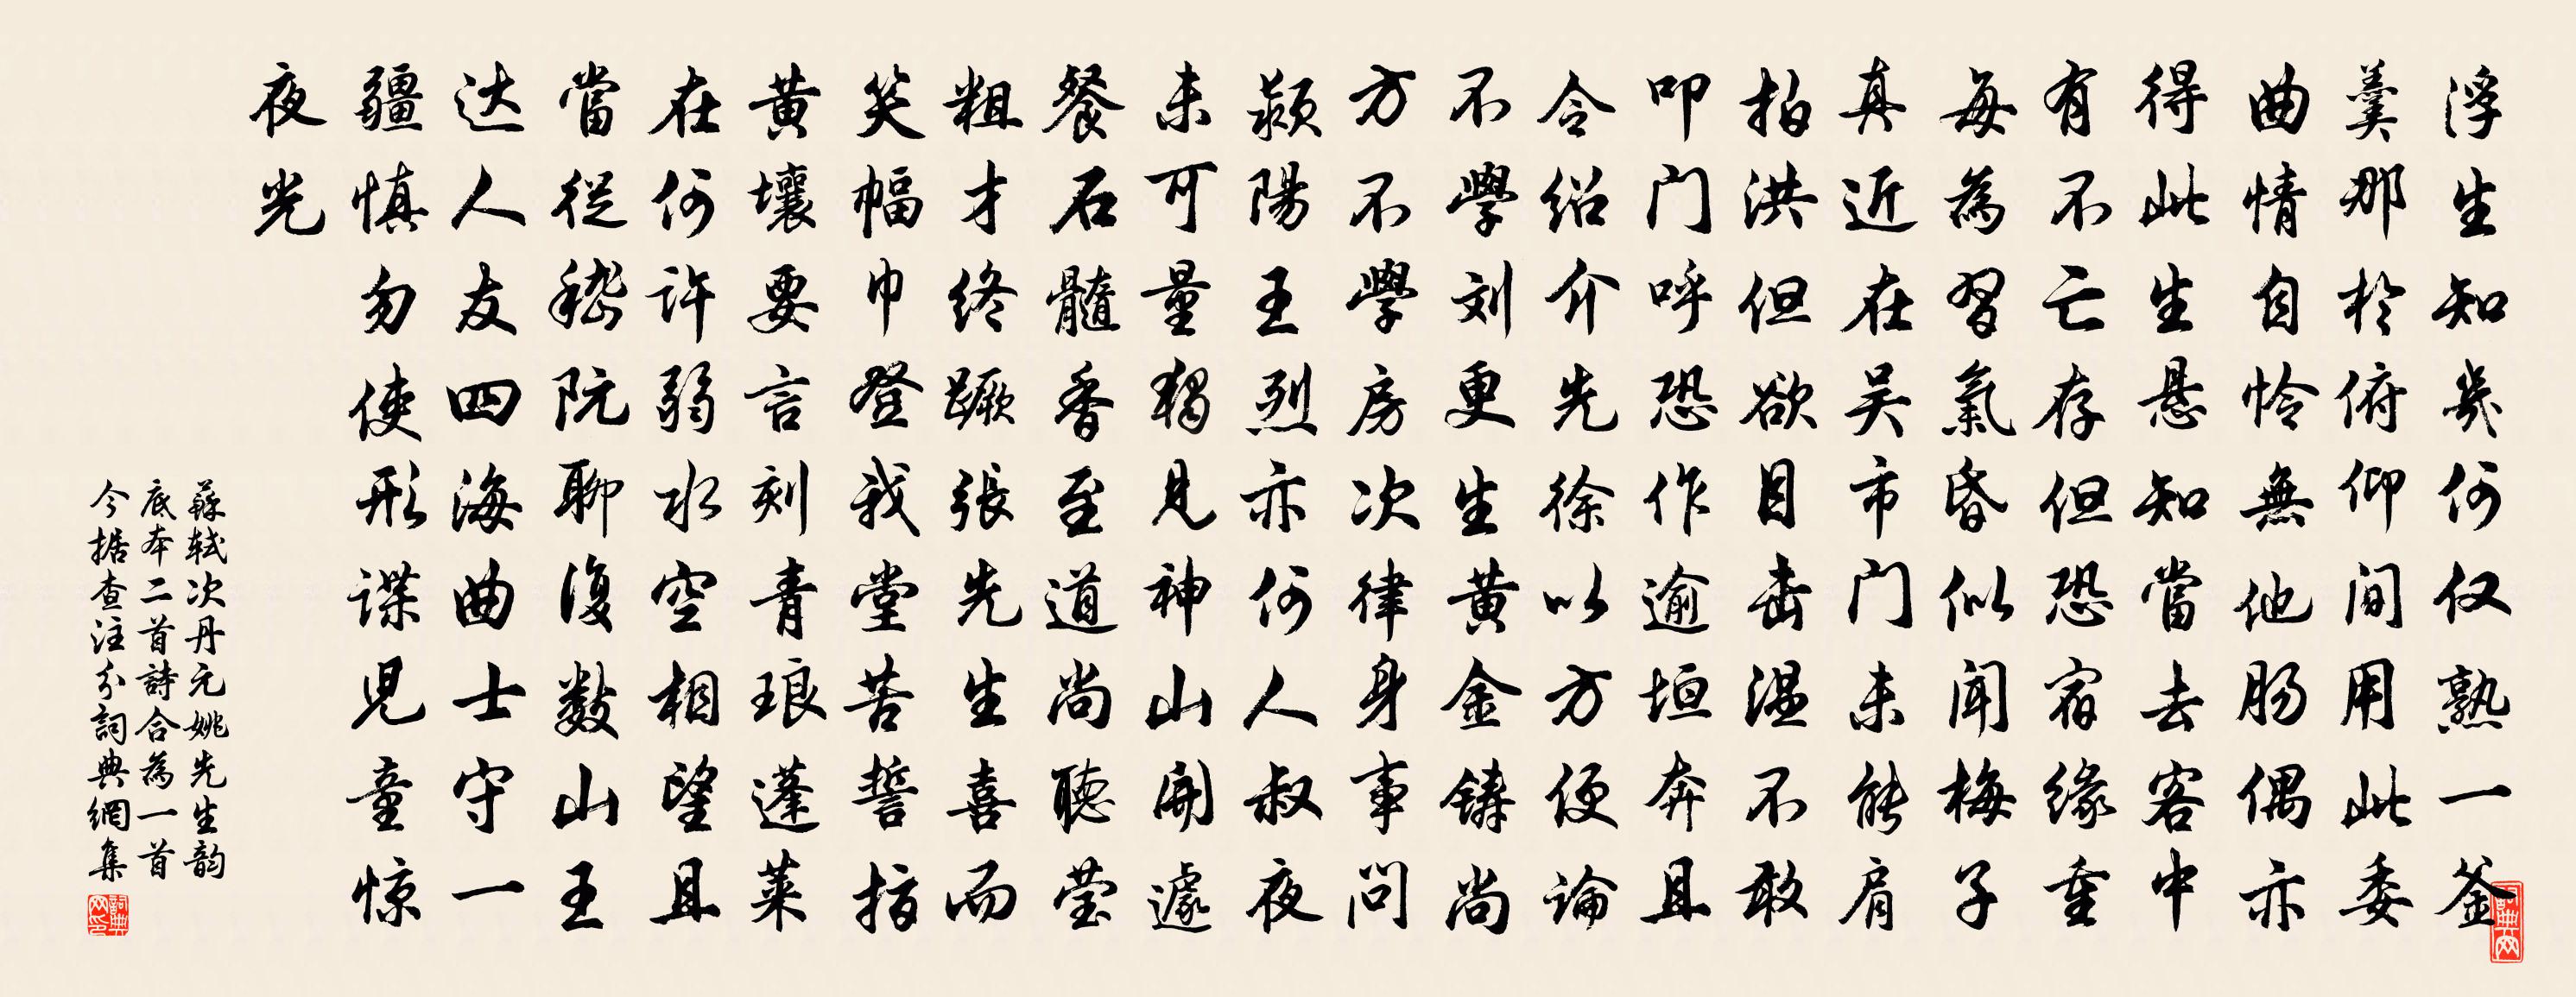 浮生知幾何仅熟一釜
羹那於俯仰间用此委
曲情自怜無他肠偶亦
得此生悬知當去客中
有不亡存但恐宿缘重
每為習氣昏似聞梅子
真近在吴市门未能肩
拍洪但欲目击温不敢
叩门呼恐作逾垣奔且
令绍介先徐以方便论
不學刘更生黄金铸尚
方不學房次律身事问
颍陽王烈亦何人叔夜
未可量獨見神山開遽
餐石髓香至道尚聴莹
粗才终蹶張先生喜而
笑幅巾登我堂苦誓指
黄壤要言刻青琅蓬莱
在何许弱水空相望且
當從嵇阮聊復数山王
达人友四海曲士守一
疆慎勿使形谍児童惊
夜光
蘇轼次丹元姚先生韵
底本二首詩合為一首
今据查注分詞典網集
詞典网
詞典网印